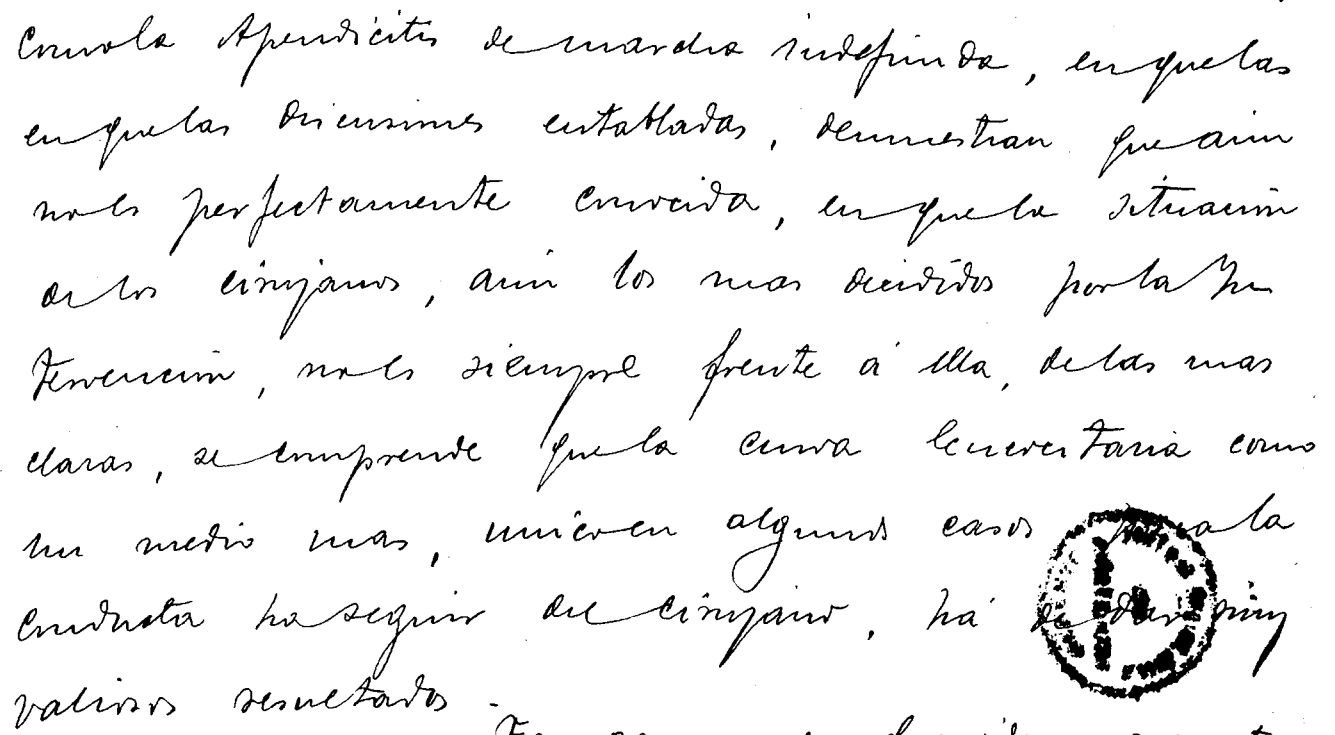 como la Apendicitis de marcha indefinida, en que las
en que las discusiones entabladas, demuestran que aun
no es perfectamente conocida, en que la situacion
de los cirujanos, aún los mas decididos por la In
tervencion, no es siempre frente á ella, de las mas
claras, se comprende que la curva leucocitaria como
un medio mas, unico en algunos casos para la
conducta ha seguir del cirujano, há de dar muy
valiosos resultados.